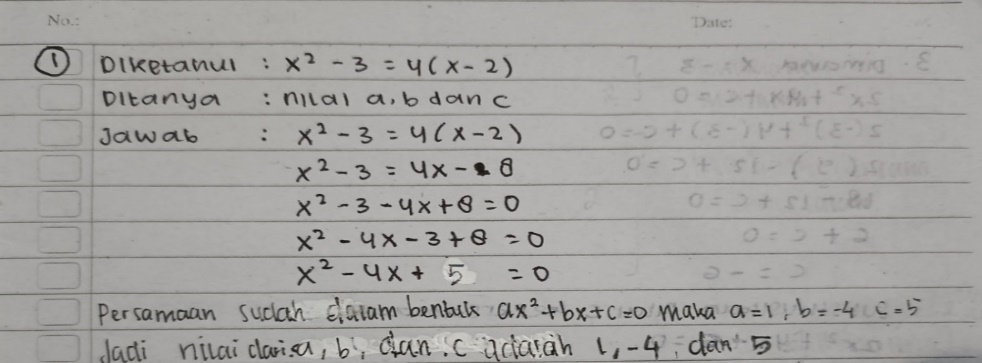 No.: Date:
① Diketahui : x² - 3 = 4(x - 2)
Ditanya : nilai a, b dan c
Jawab : x² - 3 = 4(x - 2)
x² - 3 = 4x - 8
x² - 3 - 4x + 8 = 0
x² - 4x - 3 + 8 = 0
x² - 4x + 5 = 0
Persamaan sudah dalam bentuk ax² + bx + c = 0 maka a = 1, b = -4 c = 5
Jadi nilai dari a, b, dan c adalah 1, -4, dan 5